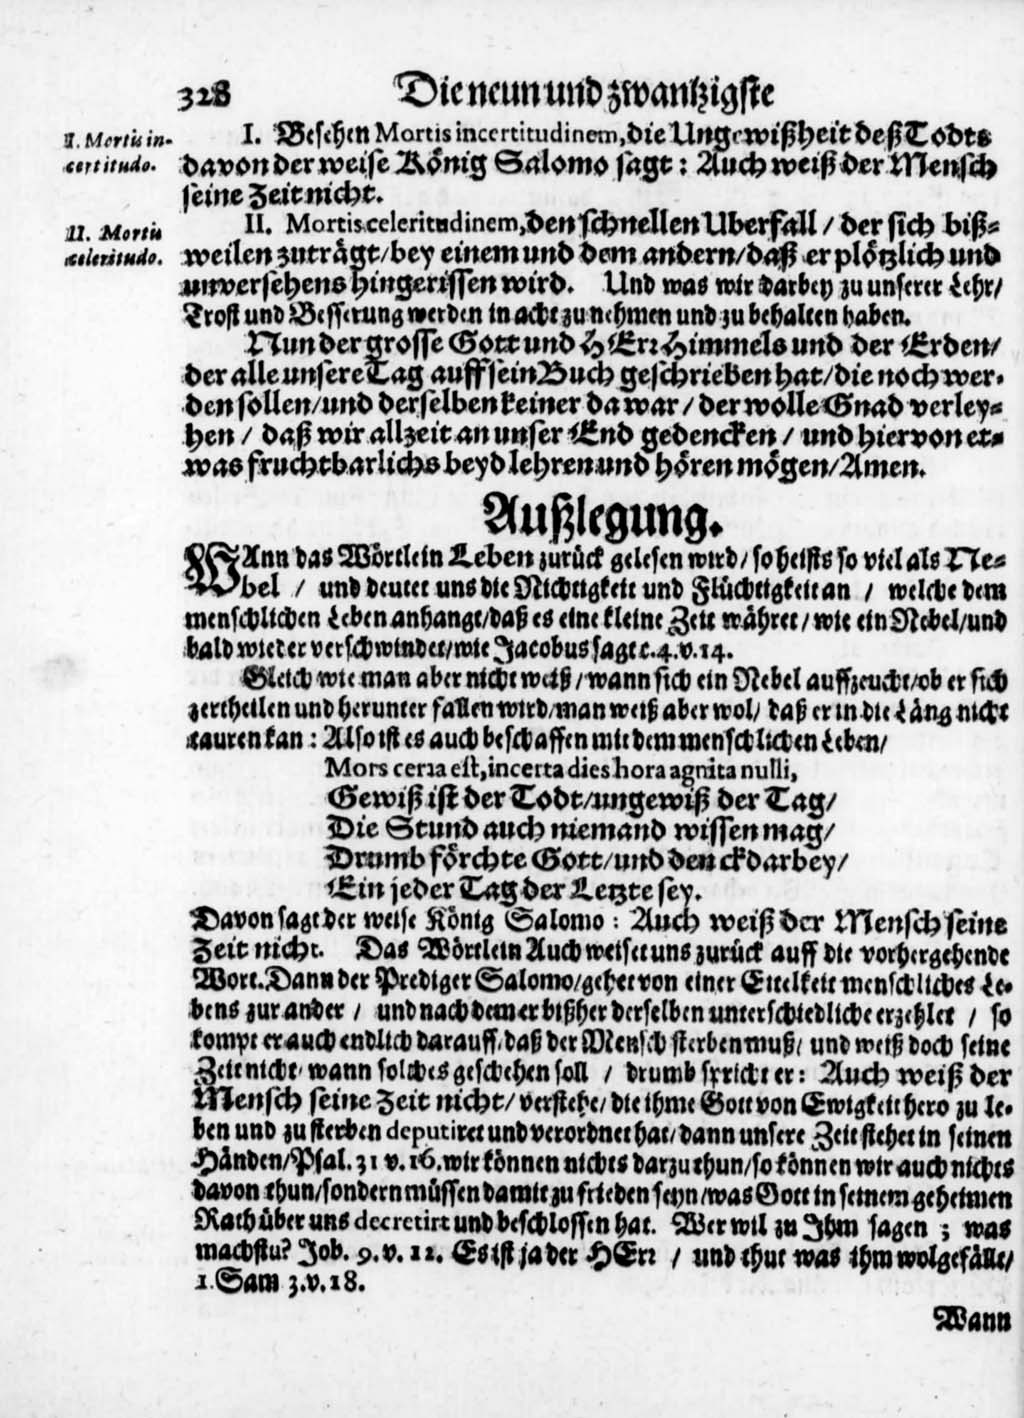 328 Die neun und zwantzigste
I. Mortis in-
certitudo.
I. Besehen Mortis incertitudinem, die Ungewißheit deß Todts
davon der weise König Salomo sagt: Auch weiß der Mensch
seine Zeit nicht.
II. Mortis
celeritudo.
II. Mortis celeritudinem, den schnellen Uberfall / der sich biß-
weilen zuträgt/bey einem und dem andern/daß er plötzlich und
unversehens hingerissen wird. Und was wir darbey zu unserer Lehr/
Trost und Besserung werden in acht zu nehmen und zu behalten haben.
Nun der grosse Gott und HErr Himmels und der Erden/
der alle unsere Tag auff sein Buch geschrieben hat/die noch wer-
den sollen/und derselben keiner da war / der wolle Gnad verley-
hen / daß wir allzeit an unser End gedencken / und hiervon et-
was fruchtbarlichs beyd lehren und hören mögen/Amen.
Außlegung.
WAnn das Wörtlein Leben zurück gelesen wird/so heists so viel als Ne-
bel / und deutet uns die Nichtigkeit und Flüchtigkeit an / welche dem
menschlichen Leben anhangt/daß es eine kleine Zeit währet/wie ein Nebel/und
bald wieder verschwindet/wie Jacobus sagt c.4.v.14.
Gleich wie man aber nicht weiß/wann sich ein Nebel auffzeucht/ob er sich
zertheilen und herunter fallen wird/man weiß aber wol/ daß er in die Läng nicht
tauren kan: Also ist es auch beschaffen mit dem menschlichen Leben/
Mors certa est, incerta dies hora agnita nulli,
Gewiß ist der Todt/ungewiß der Tag/
Die Stund auch niemand wissen mag/
Drumb förchte Gott/und denck darbey/
Ein jeder Tag der Letzte sey.
Davon sagt der weise König Salomo: Auch weiß der Mensch seine
Zeit nicht. Das Wörtlein Auch weiset uns zurück auff die vorhergehende
Wort. Dann der Prediger Salomo/gehet von einer Eitelkeit menschliches Le-
bens zur ander / und nach dem er bißher derselben unterschiedliche erzehlet / so
kompt er auch endlich darauff/daß der Mensch sterben muß/ und weiß doch seine
Zeit nicht/wann solches geschehen soll / drumb spricht er: Auch weiß der
Mensch seine Zeit nicht/verstehe/die ihme Gott von Ewigkeit hero zu le-
ben und zu sterben deputiret und verordnet hat/dann unsere Zeit stehet in seinen
Händen/Psal. 31 v.16.wir können nichts darzu thun/so können wir auch nichts
davon thun/sondern müssen damit zu frieden seyn/was Gott in seinem geheimen
Rath über uns decretirt und beschlossen hat. Wer wil zu Ihm sagen ; was
machstu? Job. 9.v.12. Es ist ja der HErr / und thut was ihm wolgefällt/
1.Sam 3.v.18.
Wann